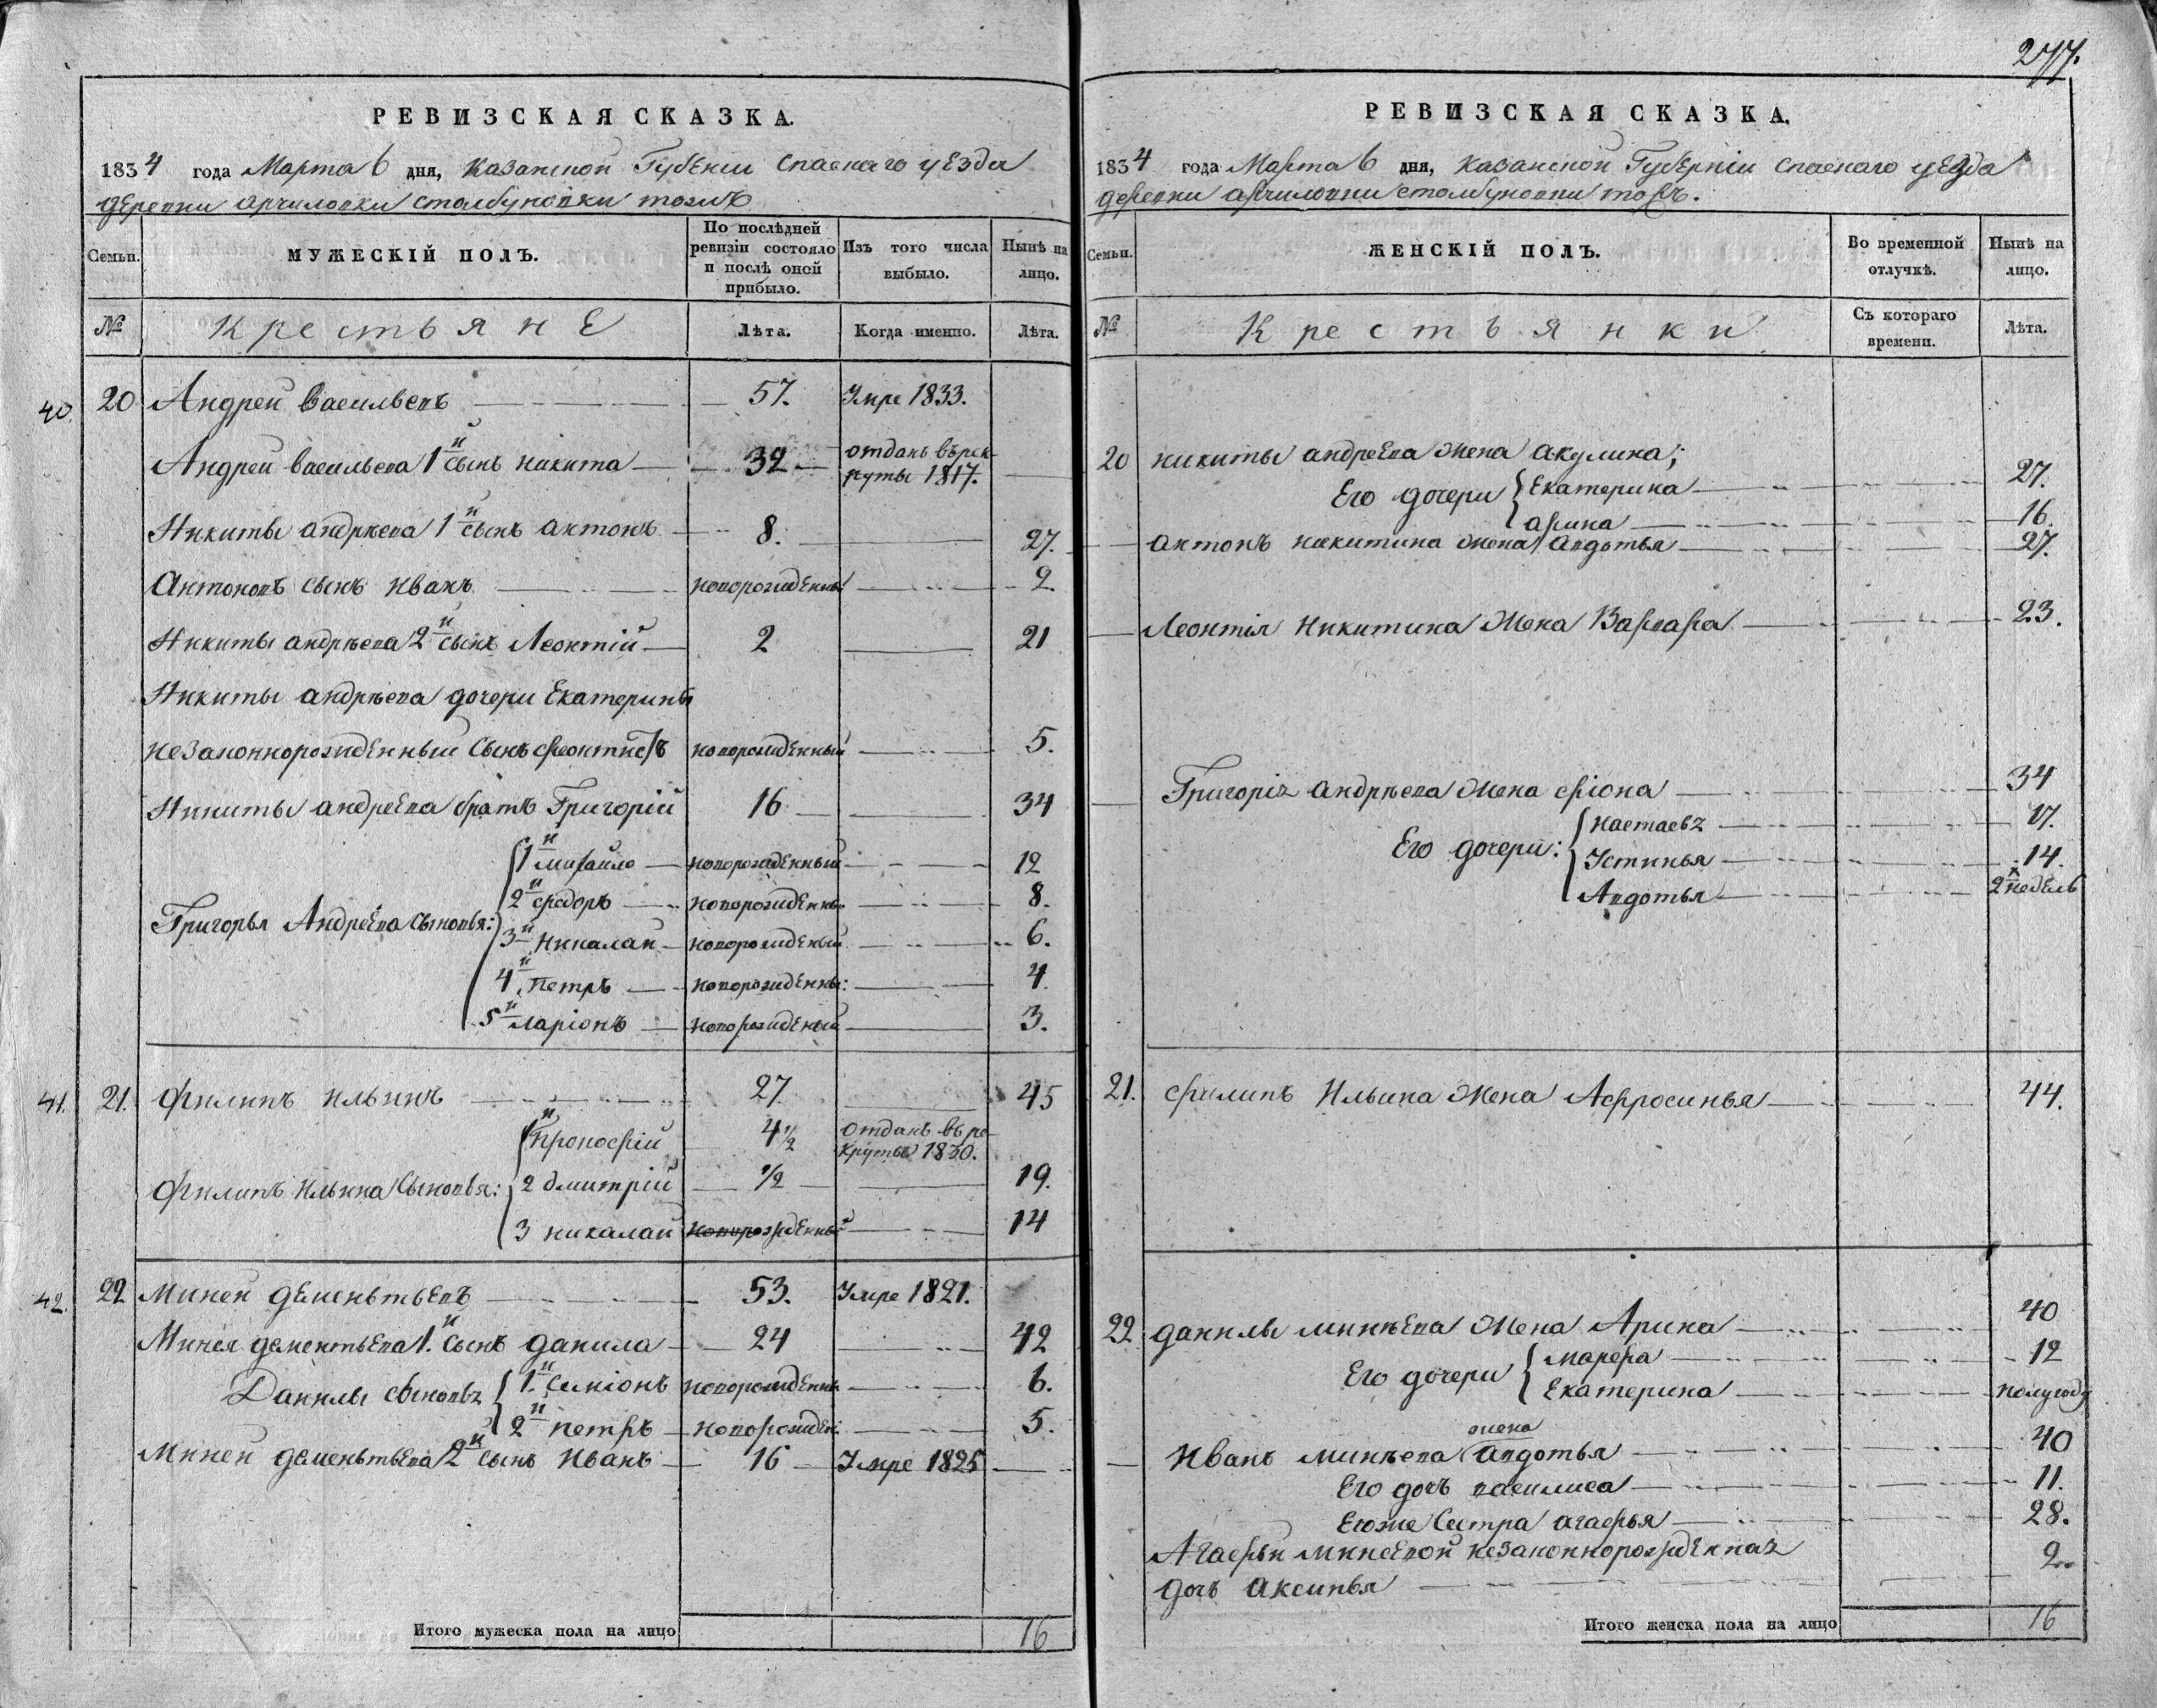 277.
РЕВИЗСКАЯ СКАЗКА.
1834 года Марта 6 дня, Казанской Губеніи Спаскаго уезда
деревни арчиловки столбуновки тожъ
Семьи. МУЖЕСКІЙ ПОЛЪ. По послѣдней ревизіи состояло и послѣ оной прибыло. Изъ того числа выбыло. Нынѣ на лицо.
№ Крестьяне Лѣта. Когда именно. Лѣта.
40. 20 Андрей васильевъ 57. Умре 1833.
Андрей васильева 1й сынъ никита 32 отданъ върек
руты 1817.
Никиты андрѣева 1й сынъ антонъ 8. 27.
Антоновъ сынъ иванъ новорожденны 2.
Никиты андрѣева 2й сынъ Леонтій 2 21
Никиты андрѣева дочери Екатерины
незаконнорожденный сынъ новорожденный 5.
Никиты андреева братъ Григорій 16 34
1й михайло новорожденный 12
2й федоръ новорожденны 8.
Григорья Андреева сыновья: 3й николай новорожденый 6.
4й петръ новорожденны: 4
5й ларіонъ новорожденый 3.
41. 21. филипъ ильинъ 27 45
1й прокофій 4 1/2 отданъ въре
круты 1830.
филипъ ильина сыновья: 2 дмитрій 1/2 19.
3 никалай новорожденный 14
42. 22 Миней деменьтьевъ 53. Умре 1821.
Минея дементьева 1й сынъ данила 24 42
Данилы сыновья 1й симіонъ новорожденны 6.
2й петръ новорожден: 5.
Миней деменьтьева 2й сынъ иванъ 16 Умре 1825
Итого мужеска пола на лицо 16
РЕВИЗСКАЯ СКАЗКА.
1834 года Марта 6 дня, Казанской Губерніи спаскаго уезда
деревни арчиловки столбуновки тожъ.
Семьи. ЖЕНСКІЙ ПОЛЪ. Во временной отлучкѣ. Нынѣ на лицо.
№ Крестьянки Съ котораго времени. Лѣта.
20 никиты андреева жена акулина;
Его дочери Екатерина 27.
арина 16.
антонъ никитина жена авдотья 27.
Леонтія никитина жена Варвара 23.
Григорія андрѣева жена фіона 34
настасья 17.
Его дочери: Устинья 14.
Авдотья 2х недель
21. филипъ Ильина жена Афросинья 44.
22. данилы минѣева жена Арина 40
Его дочери марфа 12
Екатерина полугоду
жена
Иванъ минѣева авдотья 40
Его дочь василиса 11.
Егоже сестра агафья 28.
Агафьи минеевой незаконнорожденная 2
дочь аксинья
Итого женска пола на лицо 16